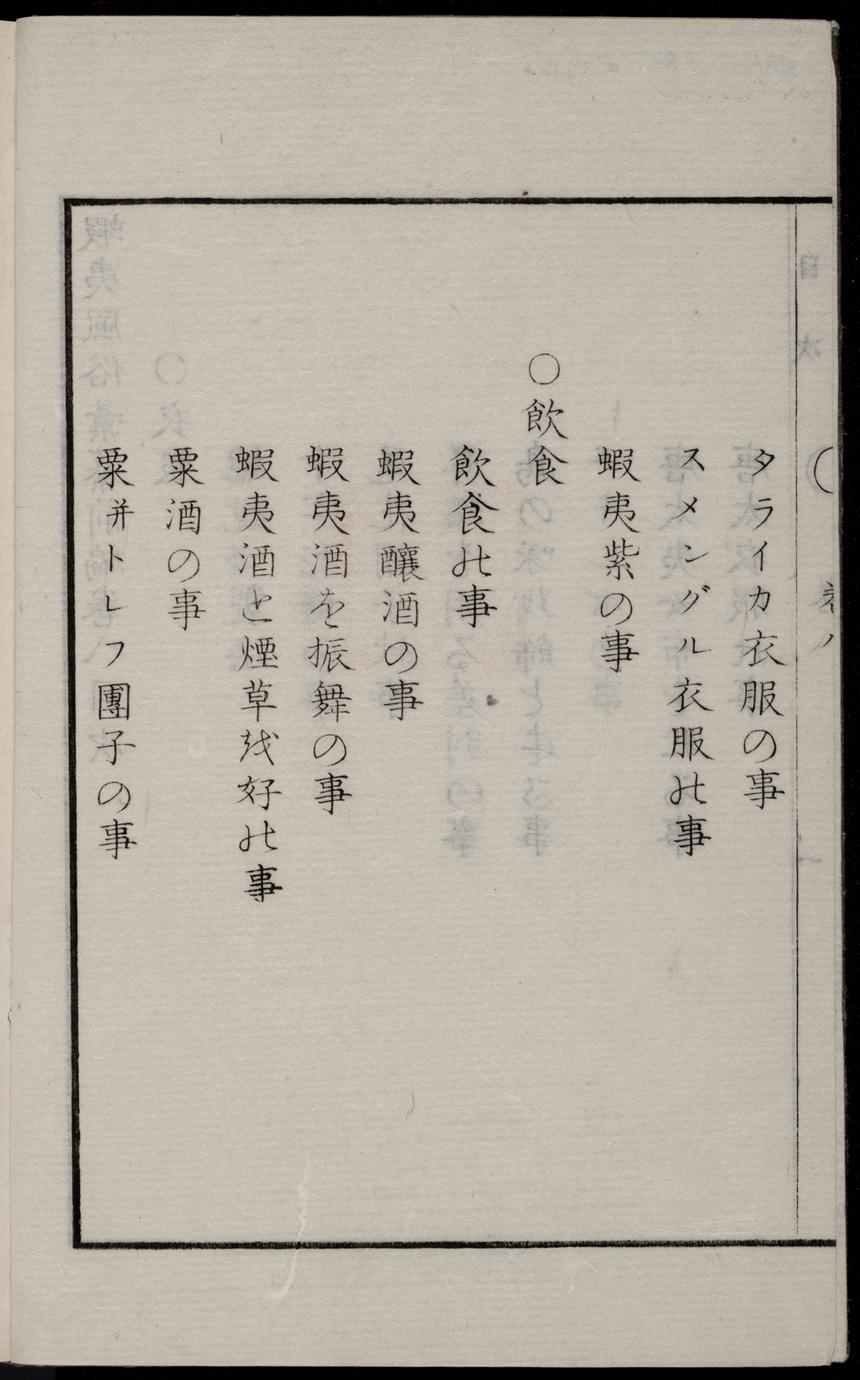 タライカ衣服の事
スメングル衣服の事
蝦夷紫の事
○飲食
飲食の事
蝦夷釀酒の事
蝦夷酒を振舞の事
蝦夷酒と煙草を好の事
粟酒の事
粟并トレフ團子の事